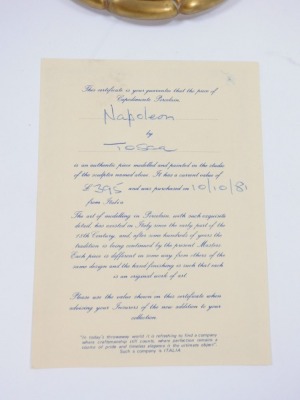 This certificate is your guarantee that the piece of
Capodimonte Porcelain
Napoleon
by
Tosca
is an authentic piece modelled and painted in the studio
of the sculptor named alone. It has a current value of
£395 and was purchased on 10/10/81
from Italia
The art of modelling in Porcelain with such exquisite
detail has existed in Italy since the early part of the
18th Century, and, after some hundreds of years the
tradition is being continued by the present Masters.
Each piece is different in some way from others of the
same design and the hand finishing is such that each
is an original work of art
Please use the value shown on this certificate when
advising your Insurers of the new addition to your
collection.
"In today's throwaway world it is refreshing to find a company
where craftsmanship still counts, where perfection remains a
matter of pride and timeless elegance is the ultimate object"
Such a company is ITALIA